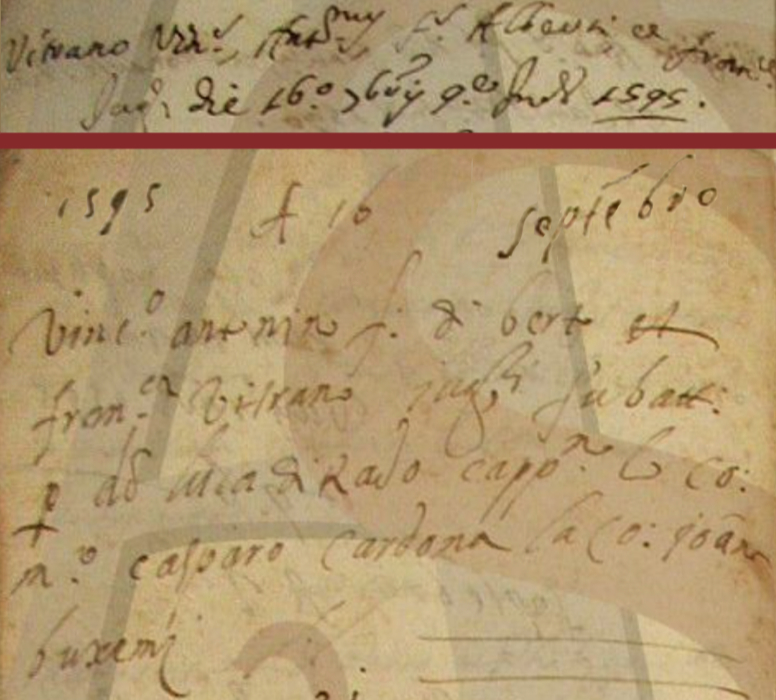 Vitrano Vin.º Ant.ny f. Alberti et fran.ca
Jug. die 16.º 7bris 9.e Ind. 1595.
1595 A 10 septēbro
Vinc.º antonin f. di berto et
fran.ca Vitrano jug.li fu batt.
p do luca di cappn. lo co:
m.º casparo Cardona la co: joāna
buxemi